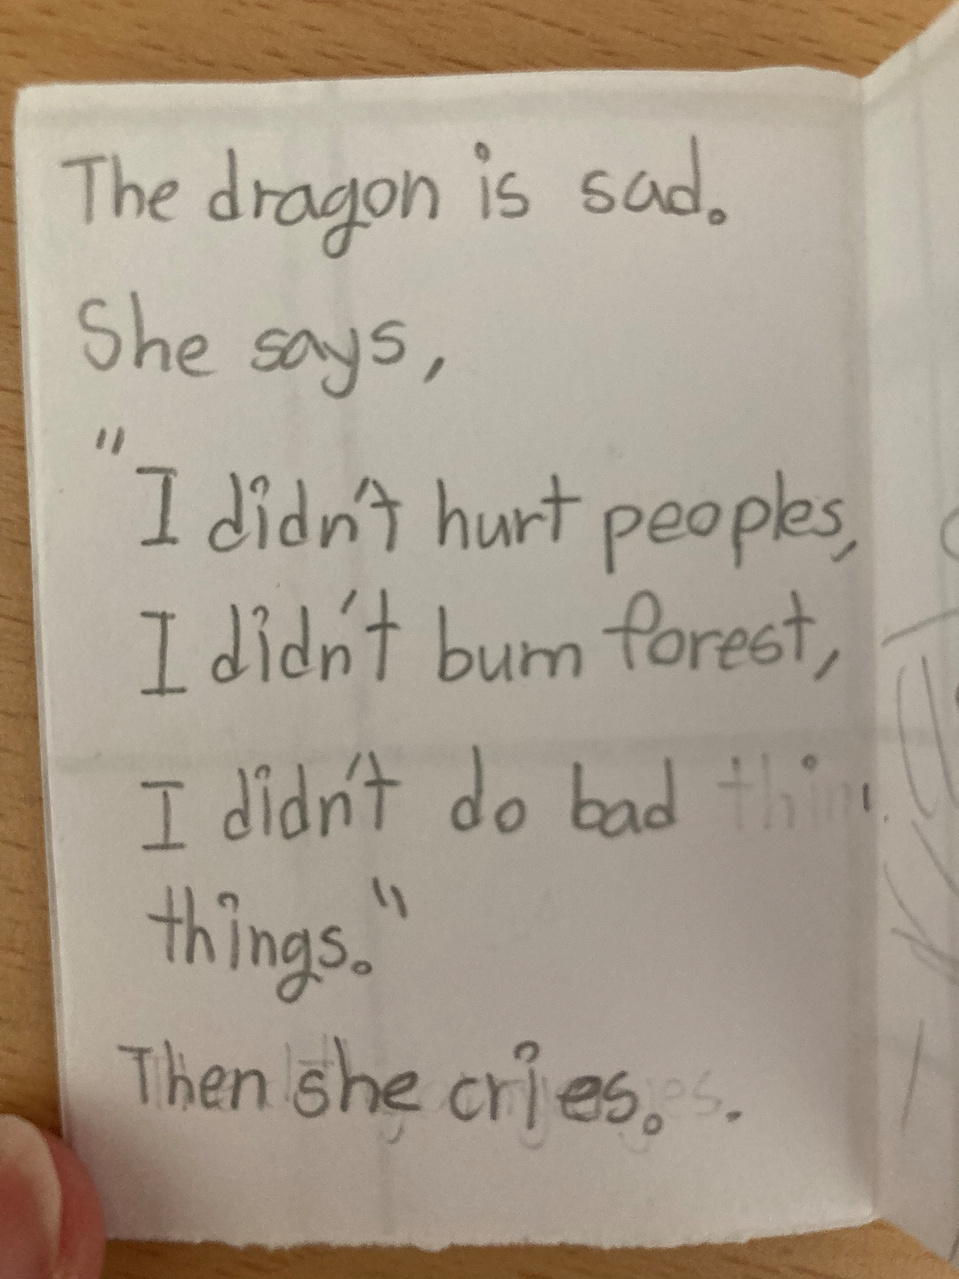 The dragon is sad.
She says,
"I didn't hurt peoples,
I didn't burn forest,
I didn't do bad
things."
Then she cries.